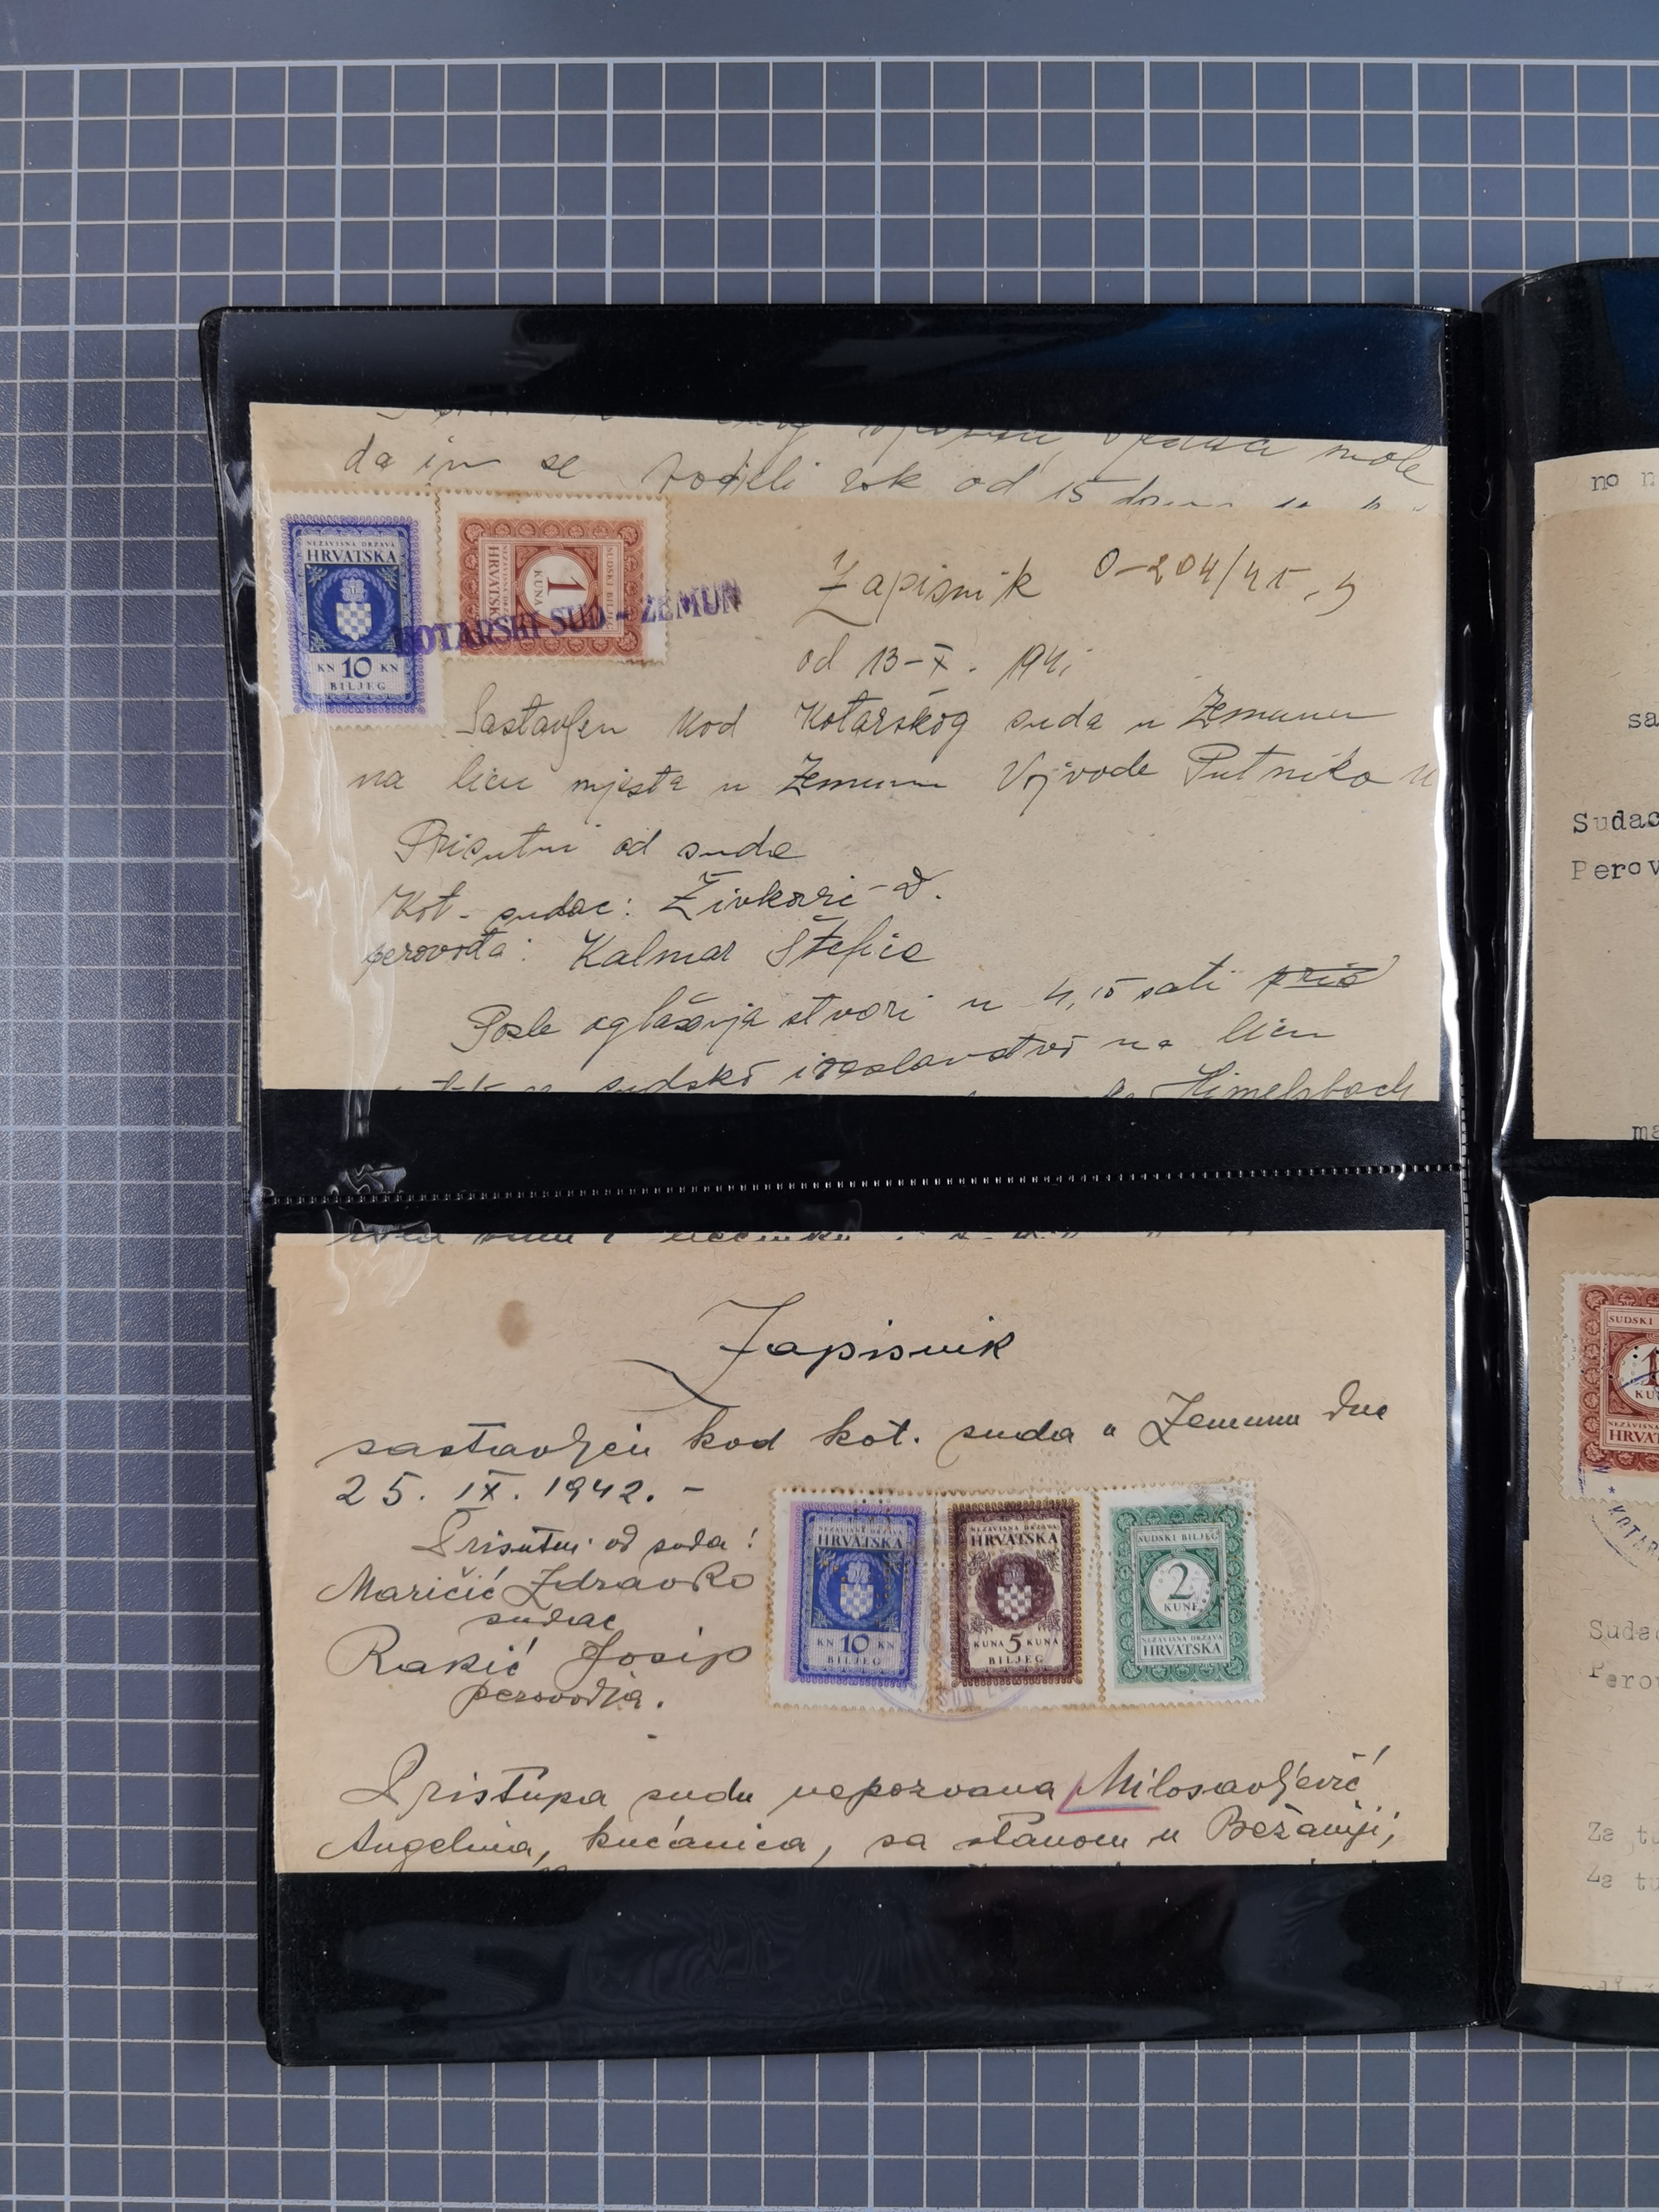 mole
da im se rok od 15
NEZAVISNA DRŽAVA
HRVATSKA
KN 10 KN
BILJEG
SUDSKI BILJEG
1
KUNA
NEZAVISNA DRŽAVA
HRVATSKA
KOTARSKI SUD - ZEMUN
Zapisnik 0-204/41,
od 13-X. 1941
Sastavljen kod Kotarskog suda u Zemunu
na licu mjesta u Zemunu Vojvode Putnika
Prisutni od suda
Kot. sudac:
perovođa: Kalmar Štefica
Posle oglašenja stvari u 4,15 sati
sudsko izaslanstvo na licu
Himelsbach
Zapisnik
sastavljen kod kot. suda u Zemunu dne
25. IX. 1942. -
Prisutni od suda:
Maričić Zdravko
sudac
Rakić Josip
perovodja.
NEZAVISNA DRŽAVA
HRVATSKA
KN 10 KN
BILJEG
NEZAVISNA DRŽAVA
HRVATSKA
KUNA 5 KUNA
BILJEG
SUDSKI BILJEG
2
KUNE
NEZAVISNA DRŽAVA
HRVATSKA
Pristupa sudu nepozvana Milosavljević
Angelina, kućanica, sa stanom u Bežaniji,
no
sa
Sudac
Perov
ma
SUDSKI
1
KU
NEZAVISNA
HRVAT
KOTAR
Sudac
Perov
Za tu
Za tu